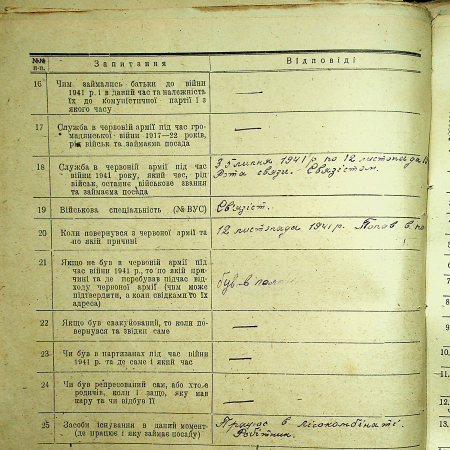 №№ п-п.
Запитання
Відповіді
16 Чим займались батьки до війни
1941 р. і в даний час та належність
їх до комуністичної партії і з
якого часу
—
17 Служба в червоній армії під час гро-
мадянської війни 1917—22 років,
рід військ та займаєма посада
—
18 Служба в червоній армії під час
війни 1941 року, який час, рід
військ, останнє військове звання
та займаєма посада
З 5 липня 1941 р по 12 листопада
Рота связи. Связістом.
19 Військова спеціальність (№ ВУС)
Связіст.
20 Коли повернувся з червоної армії та
по якій причині
12 листопада 1941 р. Попав в по
21 Якщо не був в червоній армії під
час війни 1941 р., то по якій при-
чині та де перебував підчас від-
ходу червоної армії (чим може
підтвердити, з коля свідками то їх
адреса)
був в
22 Якщо був евакуйований, то коли по-
вернувся та звідки саме
—
23 Чи був в партизанах під час війни
1941 р. та де саме і який час
—
24 Чи був репресований сам, або хто-з
родичів, коли і защо, яку мав
кару та чи відбув її
—
25 Засоби існування в даний момент
(де працює і яку займає посаду)
Працюю в лісокомбінаті.
Робітник.
10.
11.
12.
13.